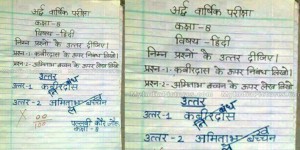 अर्द्ध वार्षिक परीक्षा
कक्षा-8
विषय-हिंदी
निम्न प्रश्नों के उत्तर दीजिए।
प्रश्न-1-कबीरदास के ऊपर निबंध लिखो।
प्रश्न-2-अमिताभ बच्चन के ऊपर लेख लिखो
उत्तर
उत्तर-1 कबीरदास
उत्तर-2 अमिताभ बच्चन
कक्षा-8
अर्द्ध वार्षिक परीक्षा
कक्षा-8
विषय-हिंदी
निम्न प्रश्नों के उत्तर दीजिए।
प्रश्न-1-कबीरदास के ऊपर निबंध लिखो।
प्रश्न-2-अमिताभ बच्चन के ऊपर लेख लिखो
उत्तर
उत्तर-1 कबीरदास
उत्तर-2 अमिताभ बच्चन